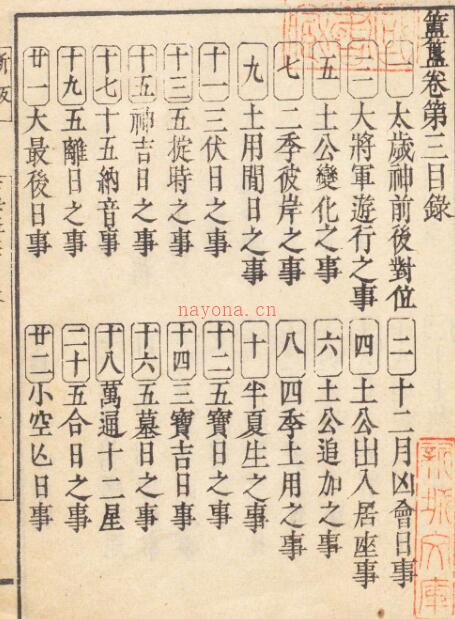 簠簋卷第三目錄
一 太歲神前後對位 二 十二月凶會日事
三 大將軍遊行之事 四 土公出入居座事
五 土公變化之事 六 土公追加之事
七 二季彼岸之事 八 四季土用之事
九 土用間日之事 十 半夏生之事
十一 三伏日之事 十二 五寶日之事
十三 五掟時之事 十四 三寶吉日事
十五 神吉日之事 十六 五墓日之事
十七 十五納音事 十八 萬通十二星
十九 五離日之事 二十 五合日之事
廿一 大最後日事 廿二 小空亾日事
nayona.cn
新城文庫